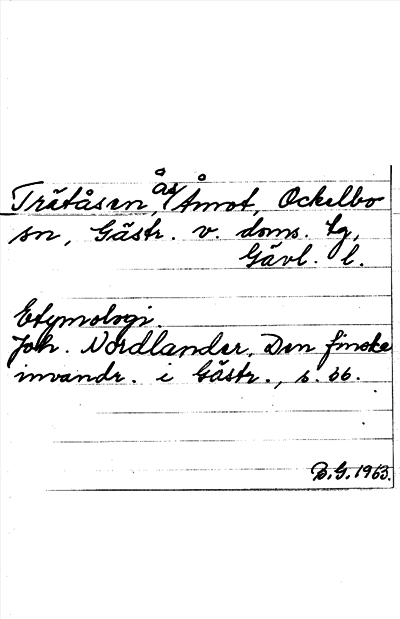 Trätåsen, ås, Åmot, Ockelbo
sn, Gästr. v. doms. tg,
Gävl. l.
Etymologi.
Joh. Nordlander, Den finska
invandr. i Gästr., s. 36.
B.G. 1963.